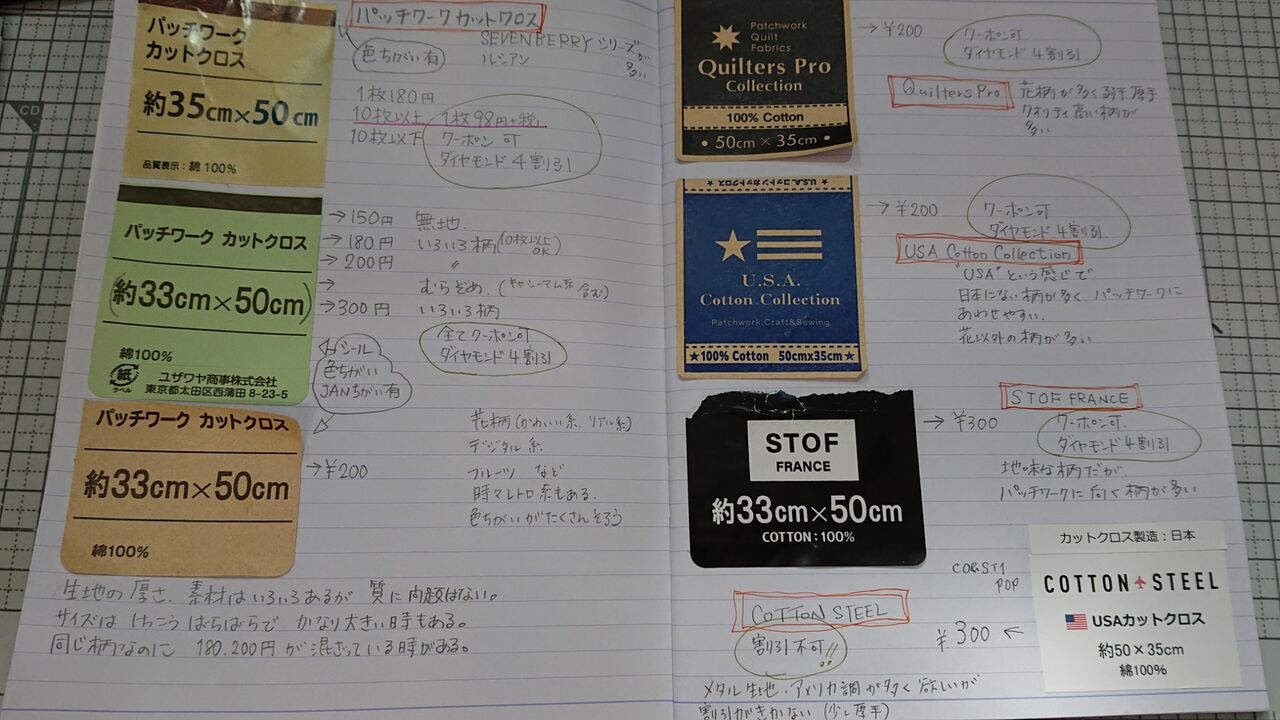 パッチワーク
カットクロス
約35cm×50cm
品質表示：綿100%
パッチワークカットクロス
色ちがい有
SEVENBERRY シリーズが
多い
ルシアン
1枚180円
10枚以上 1枚98円+税
10枚以下
クーポン可
ダイヤモンド4割引
パッチワーク カットクロス
約33cm×50cm
綿100%
紙
ラベル
ユザワヤ商事株式会社
東京都太田区西蒲田 8-23-5
→150円 無地
→180円 いろいろ柄(10枚以上OK)
→200円 〃
→ むらぞめ.(キャシーマム系含む)
→300円 いろいろ柄
全てクーポン可
ダイヤモンド4割引
シール
色ちがい
JANちがい有
パッチワーク カットクロス
約33cm×50cm
綿100%
→¥200
花柄(かわいい系.リアル系)
デジタル系
フルーツ など
時々レトロ系もある.
色ちがいがたくさんそろう
生地の厚さ、素材はいろいろあるが 質に問題はない。
サイズは けっこう ばらばらで かなり大きい時もある。
同じ柄なのに 180.200円が混ざっている時がある。
Patchwork
Quilt
Fabrics
Quilters Pro
Collection
100% Cotton
50cm × 35cm
→¥200
クーポン可
ダイヤモンド4割引
Quilters Pro
花柄が多く若干厚手
クオリティ高い柄が
多い
★U.S.A.コットンカットクロス★
U.S.A.
Cotton Collection
Patchwork,Craft&Sewing
★100% Cotton 50cm×35cm★
→¥200
クーポン可
ダイヤモンド4割引.
USA Cotton Collection
"USA"という感じで
日本にない柄が多く パッチワークに
あわせやすい.
花以外の柄が多い
STOF
FRANCE
約33cm×50cm
COTTON:100%
→¥300
STOF FRANCE
クーポン可.
ダイヤモンド4割引
地味な柄だが
パッチワークに向く柄が多い
カットクロス製造：日本
COTTON STEEL
USAカットクロス
約50×35cm
綿100%
POP
COTTON STEEL
割引不可!!
¥300←
メタル生地.アメリカ調が多く欲しいが
割引がきかない(少し厚手)
CD